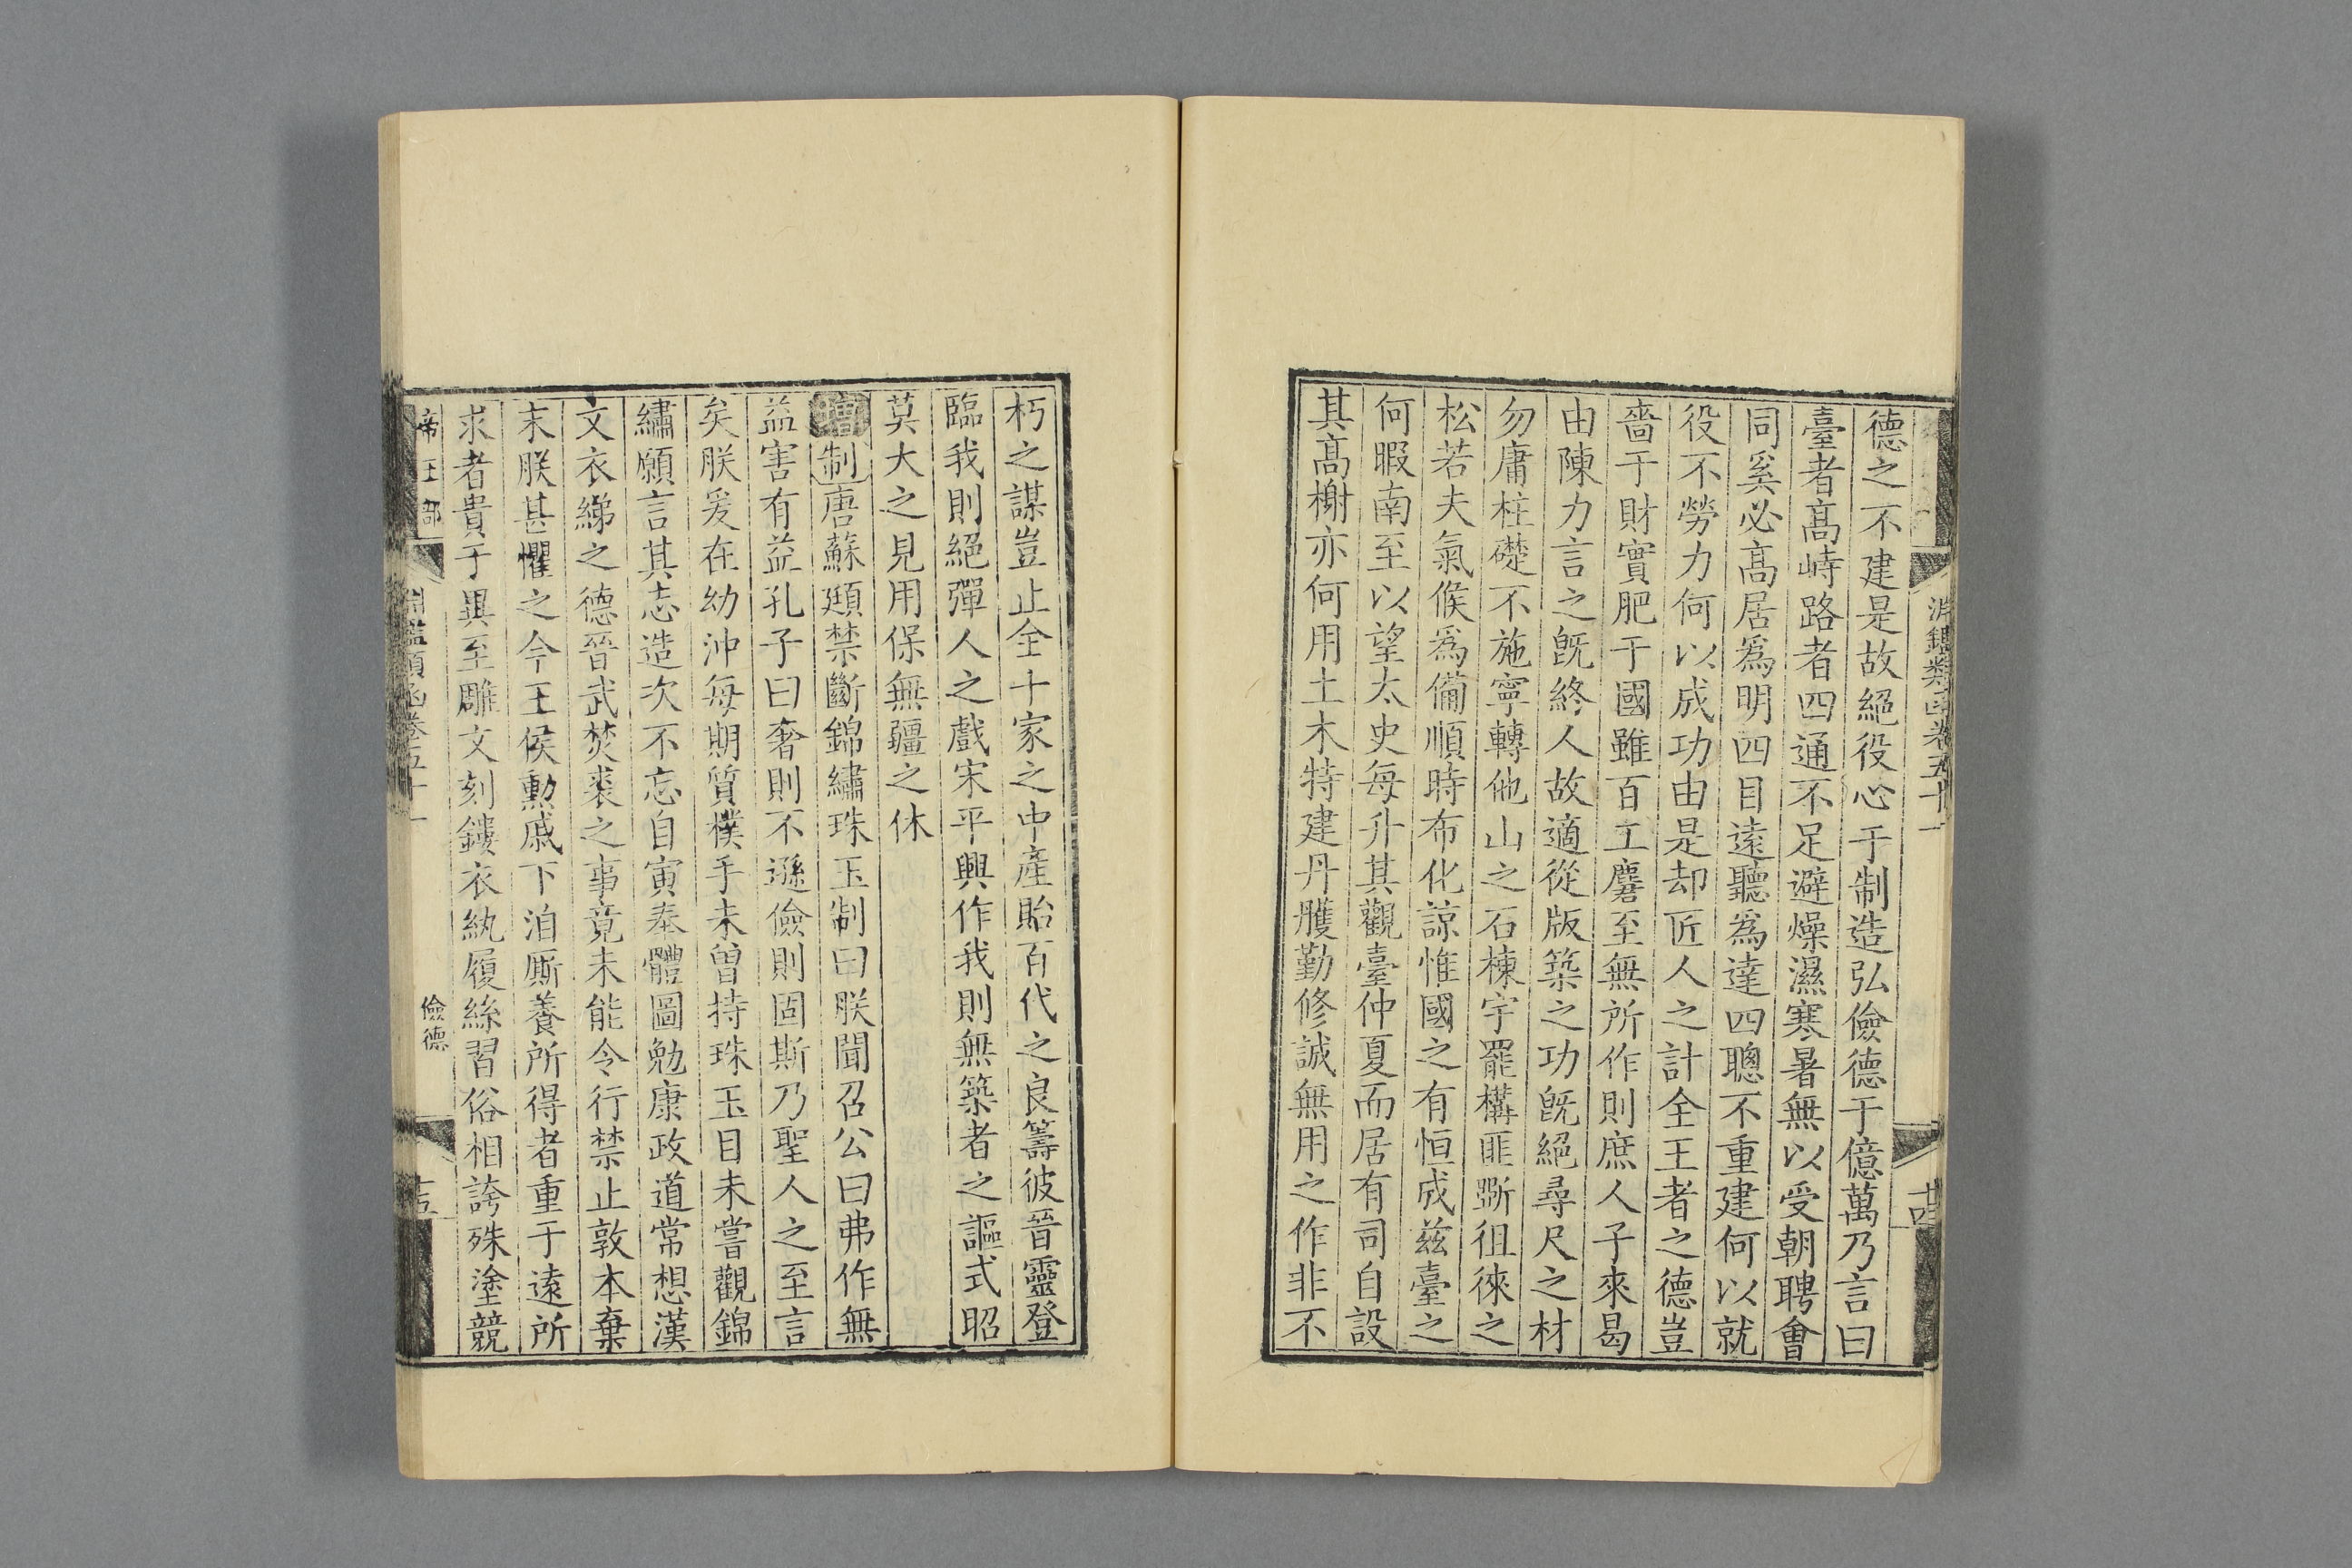 淵鑑類函卷五十一
十四
德之不建是故絕役心于制造弘儉德于億萬乃言曰
臺者高峙路者四通不足避燥濕寒暑無以受朝聘會
同奚必高居爲明四目遠聽爲達四聰不重建何以就
役不勞力何以成功由是却匠人之計全王者之德豈
嗇于財實肥于國雖百工麏至無所作則庶人子來曷
由陳力言之旣終人故適從版築之功旣絕尋尺之材
勿庸柱礎不施寧轉他山之石棟宇罷構匪斲徂徠之
松若夫氣候爲備順時布化諒惟國之有恒成兹臺之
何暇南至以望太史每升其觀臺仲夏而居有司自設
其高榭亦何用土木特建丹雘勤修誠無用之作非不
朽之謀豈止全十家之中產貽百代之良籌彼晉靈登
臨我則絕彈人之戲宋平興作我則無築者之謳式昭
莫大之見用保無疆之休
增制唐蘇頲禁斷錦繡珠玉制曰朕聞召公曰弗作無
益害有益孔子曰奢則不遜儉則固斯乃聖人之至言
矣朕爰在幼沖每期質樸手未曾持珠玉目未嘗觀錦
繡願言其志造次不忘自寅奉體圖勉康政道常想漢
文衣綈之德晉武焚裘之事竟未能令行禁止敦本棄
末朕甚懼之今王侯勳戚下洎厮養所得者重于遠所
求者貴于異至雕文刻鏤衣紈履絲習俗相誇殊塗競
帝王部
淵鑑類函卷五十一
儉德